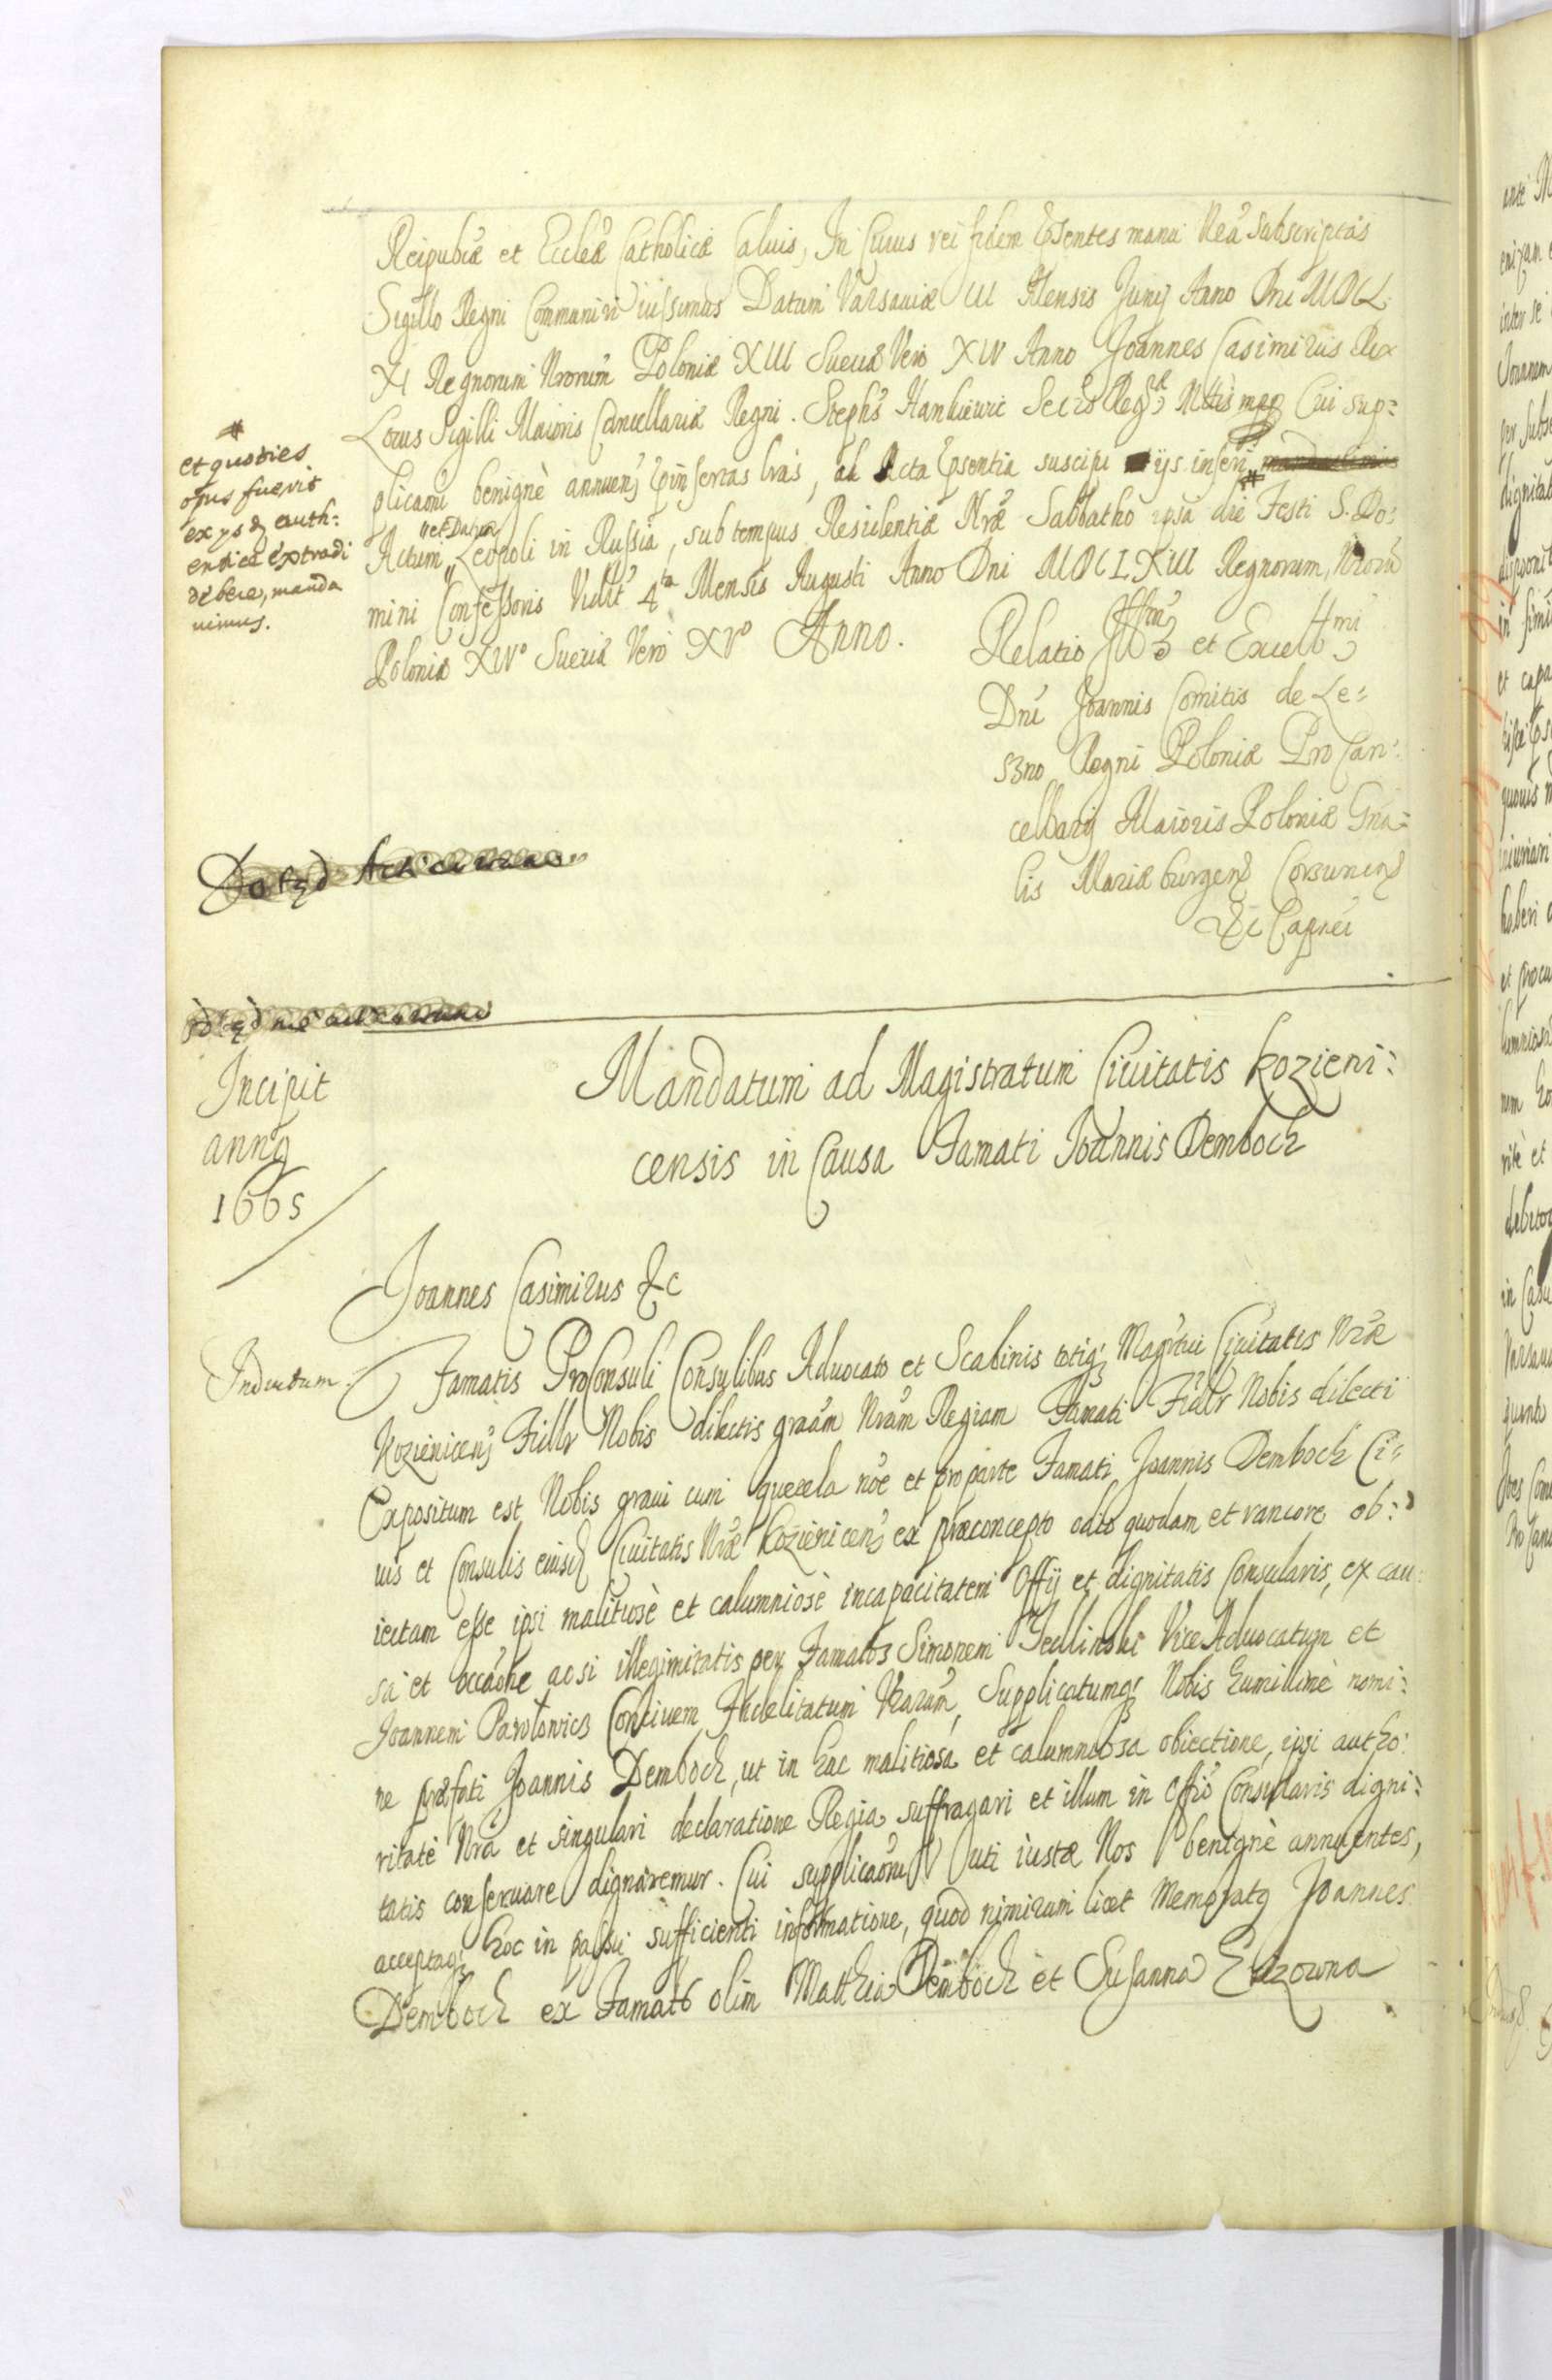 Reipubcæ et Ecclæ Catholicæ saluis, In Cuius rei fidem Pñsentes manu Nrã Subscriptas
Sigillo Regni Communiri iussimus Datum Varsauiæ III Mensis Junij Anno Dni MDCL
XI Regnorum Nrorum Poloniæ XIII Sueciæ Vero XIV Anno Joannes Casimirus Rex
Locus Sigilli Maioris Cancellariæ Regni. Stephs Hankiewic Secrs Regs Mttis mpp Cui sup=
plicaõni benignè annuens pñinsertas lrãs, ad Acta Pñsentia suscipi ijs inseri
#
et quoties
opus fuerit
ex ys & auth:
entice extradi
debere, manda
uimus.
Actum et Datum Leopoli in Russia, sub tempus Residentiæ Nræ Sabbatho ipsa die Festi S. Do:
mini Confessoris Vidlt 4ta Mensis Augusti Anno Dni MDCLXIII Regnorum Nrorũ
Poloniæ XIVo Sueciæ Vero XVo Anno.
Relatio Illmi et Excellmi
Dni Joannis Comitis de Le=
szno Regni Poloniæ ProCan:
cellarij Maioris Poloniæ Gña=
lis Mariæburgens Corsunens
&c Capnei
Incipit
annq
1665
Mandatum ad Magistratum Ciuitatis Kozieni:
censis in Causa Famati Joannis Demboch
Joannes Casimirus &c
Inductum.
Famatis Proconsuli Consulibus Aduocato et Scabinis totiq Magrtui Ciuitatis Nræ
Koziènicens Fidlr Nobis dilectis graãm Nrãm Regiam Famati Fidlr Nobis dilecti
Expositum est Nobis graui cum querela nõe et pro parte Famati Joannis Demboch Ci=
uis et Consulis eiusd Ciuitatis Nræ Kozienicens ex præconcepto odio quodam et rancore ob:
iectam esse ipsi malitiosè et calumniosè incapacitatem Offij et dignitatis Consularis, ex cau:
sa et occãone acsi illegimitatis per Famatos Simonem Jedlinski ViceAduocatum et
Joannem Pawłowicz Conciuem Fidelitatum Vrarum, Supplicatumq Nobis humillimè nomi:
ne præfati Joannis Demboch, ut in hac malitiosa et calumniosa obiectione, ipsi autho:
ritate Nrã et singulari declaratione Regia suffragari et illum in offio Consularis digni:
tatis conseruare dignaremur. Cui supplicaõni uti iustæ Nos benignè annuentes,
acceptaq hoc in passu sufficienti informatione, quod nimirum licet Memoratq Joannes
Demboch ex Famatõ olim Mathia Demboch et Susanna